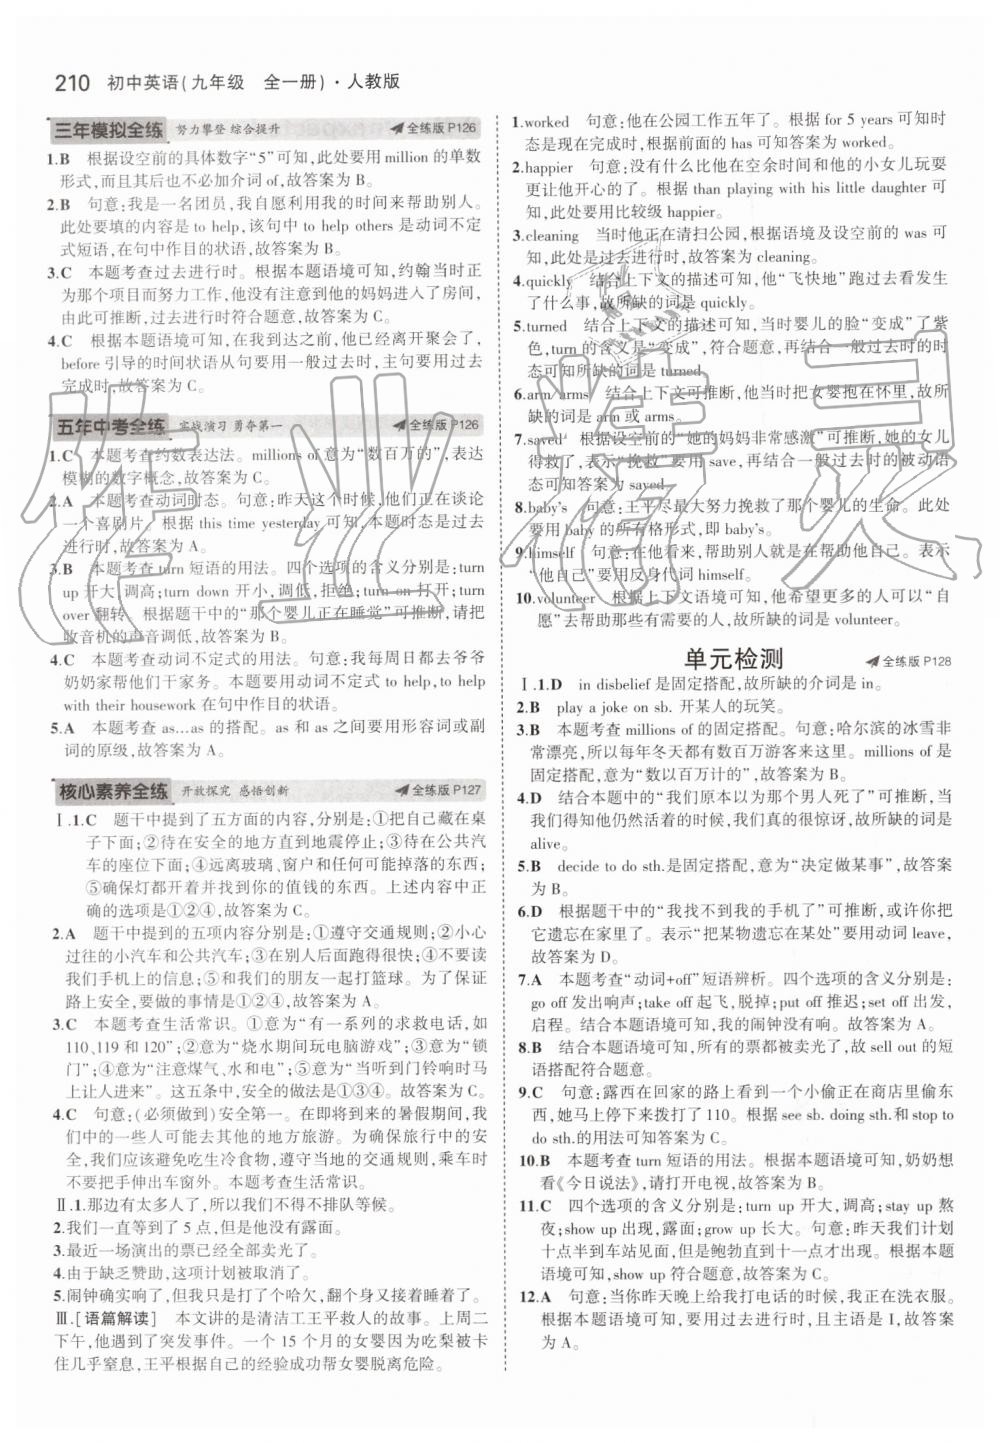 210 初中英语(九年级 全一册)·人教版
三年模拟全练 努力攀登 综合提升 全练版 P126
1.B 根据设空前的具体数字“5”可知,此处要用 million 的单数
形式,而且其后也不必加介词 of,故答案为 B。
2.B 句意:我是一名团员,我自愿利用我的时间来帮助别人。
此处要填的内容是 to help,该句中 to help others 是动词不定
式短语,在句中作目的状语,故答案为 B。
3.C 本题考查过去进行时。根据本题语境可知,约翰当时正
为那个项目而努力工作,他没有注意到他的妈妈进入了房间,
由此可推断,过去进行时符合题意,故答案为 C。
4.C 根据本题语境可知,在我到达之前,他已经离开聚会了,
before 引导的时间状语从句要用一般过去时,主句要用过去
完成时,故答案为 C。
五年中考全练 实战演习 勇夺第一 全练版 P126
1.C 本题考查约数表达法。millions of 意为“数百万的”,表达
模糊的数字概念,故答案为 C。
2.A 本题考查动词时态。句意:昨天这个时候,他们正在谈论
一个喜剧片。根据 this time yesterday 可知,本题时态是过去
进行时,故答案为 A。
3.B 本题考查 turn 短语的用法。四个选项的含义分别是:turn
up 开大,调高;turn down 开小,调低,拒绝;turn on 打开;turn
over 翻转。根据题干中的“那个婴儿正在睡觉”可推断,请把
收音机的声音调低,故答案为 B。
4.C 本题考查动词不定式的用法。句意:我每周日都去爷爷
奶奶家帮他们干家务。本题要用动词不定式 to help,to help
with their housework 在句中作目的状语。
5.A 本题考查 as…as 的搭配。as 和 as 之间要用形容词或副
词的原级,故答案为 A。
核心素养全练 开放探究 感悟创新 全练版 P127
Ⅰ.1.C 题干中提到了五方面的内容,分别是:①把自己藏在桌
子下面;②待在安全的地方直到地震停止;③待在公共汽
车的座位下面;④远离玻璃、窗户和任何可能掉落的东西;
⑤确保灯都开着并找到你的值钱的东西。上述内容中正
确的选项是①②④,故答案为 C。
2.A 题干中提到的五项内容分别是:①遵守交通规则;②小心
过往的小汽车和公共汽车;③在别人后面跑得很快;④不要读
我们手机上的信息;⑤和我们的朋友一起打篮球。为了保证
路上安全,要做的事情是①②④,故答案为 A。
3.C 本题考查生活常识。①意为“有一系列的求救电话,如
110、119 和 120”;②意为“烧水期间玩电脑游戏”;③意为“锁
门”;④意为“注意煤气、水和电”;⑤意为“当听到门铃响时马
上让人进来”。这五条中,安全的做法是①③④。故答案为 C。
4.C 句意:(必须做到)安全第一。在即将到来的暑假期间,我
们中的一些人可能去其他的地方旅游。为确保旅行中的安
全,我们应该避免吃生冷食物,遵守当地的交通规则,乘车时
不要把手伸出车窗外。本题考查生活常识。
Ⅱ.1.那边有太多人了,所以我们不得不排队等候。
2.我们一直等到了 5 点,但是他没有露面。
3.最近一场演出的票已经全部卖光了。
4.由于缺乏赞助,这项计划被取消了。
5.闹钟确实响了,但我只是打了个哈欠,翻个身又接着睡着了。
Ⅲ.[语篇解读] 本文讲的是清洁工王平救人的故事。上周二
下午,他遇到了突发事件。一个 15 个月的女婴因为吃梨被卡
住几乎窒息,王平根据自己的经验成功帮女婴脱离危险。
1.worked 句意:他在公园工作五年了。根据 for 5 years 可知时
态是现在完成时,根据前面的 has 可知答案为 worked。
2.happier 句意:没有什么比他在空余时间和他的小女儿玩耍
更让他开心的了。根据 than playing with his little daughter 可
知,此处要用比较级 happier。
3.cleaning 当时他正在清扫公园,根据语境及设空前的 was 可
知,此处是过去进行时,故答案为 cleaning。
4.quickly 结合上下文的描述可知,他“飞快地”跑过去看发生
了什么事,故所缺的词是 quickly。
5.turned 结合上下文的描述可知,当时婴儿的脸“变成”了紫
色,turn 的含义是“变成”,符合题意,再结合一般过去时的时
态可知所缺的词是 turned。
6.arm/arms 结合上下文可推断,他要把女婴抱在怀里,故所
缺的词是 arm 或 arms。
7.saved 根据设空前的“她的妈妈非常感激”可推断,她的女儿
得救了,表示“挽救”要用 save,再结合一般过去时的被动语
态可知答案为 saved。
8.baby's 句意:王平尽最大努力挽救了那个婴儿的生命。此处
要用 baby 的所有格形式,即 baby's。
9.himself 句意:在他看来,帮助别人就是在帮助他自己。表示
“他自己”要用反身代词 himself。
10.volunteer 根据上下文语境可知,他希望更多的人可以“自
愿”去帮助那些有需要的人,故所缺的词是 volunteer。
单元检测 全练版 P128
Ⅰ.1.D in disbelief 是固定搭配,故所缺的介词是 in。
2.B play a joke on sb. 开某人的玩笑。
3.B 本题考查 millions of 的固定搭配。句意:哈尔滨的冰雪非
常漂亮,所以每年冬天都有数百万游客来这里。millions of 是
固定搭配,意为“数以百万计的”,故答案为 B。
4.D 结合本题中的“我们原本以为那个男人死了”可推断,当
我们得知他仍然活着的时候,我们真的很惊讶,故所缺的词是
alive。
5.B decide to do sth.是固定搭配,意为“决定做某事”,故答案
为 B。
6.D 根据题干中的“我找不到我的手机了”可推断,或许你把
它遗忘在家里了。表示“把某物遗忘在某处”要用动词 leave,
故答案为 D。
7.A 本题考查“动词+off”短语辨析。四个选项的含义分别是:
go off 发出响声;take off 起飞,脱掉;put off 推迟;set off 出发,
启程。结合本题语境可知,我的闹钟没有响。故答案为 A。
8.B 结合本题语境可知,所有的票都被卖光了,故 sell out 的短
语搭配符合题意。
9.C 句意:露西在回家的路上看到一个小偷正在商店里偷东
西,她马上停下来拨打了 110。根据 see sb. doing sth.和 stop to
do sth.的用法可知答案为 C。
10.B 本题考查 turn 短语的用法。根据本题语境可知,奶奶想
看《今日说法》,请打开电视,故答案为 B。
11.C 四个选项的含义分别是:turn up 开大,调高;stay up 熬
夜;show up 出现,露面;grow up 长大。句意:昨天我们计划
十点半到车站见面,但是鲍勃直到十一点才出现。根据本题
语境可知,show up 符合题意,故答案为 C。
12.A 句意:当你昨天晚上给我打电话的时候,我正在洗衣服。
根据本题语境可推断,要用过去进行时,且主语是 I,故答案
为 A。
作业精灵